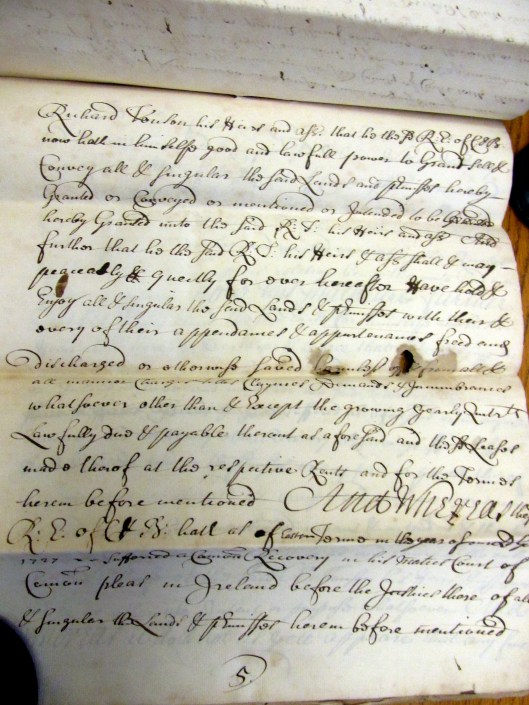 Richard Tonson his Heirs and ass: that he the sd R: E: of
now hath in himselfe good and lawfull power to Grant sell &
Convey all & singular the said Lands and p'misses hereby
Granted or Conveyed or mentioned or Intended to be
hereby Granted unto the said R: T: his Heirs and ass: And
further that he the said R: T: his Heirs & ass: shall & may
peaceably & quietly for ever hereafter Have hold &
Enjoy all & singular the said Lands & p'misses with their &
every of their appendances & appurtenances freed and
discharged or otherwise saved harmless from all &
all manner Claymes Demands & Incumbrances
whatsoever other than & Except the growing yearly Rents
Lawfully due & payable therout as aforesaid and the sd Leases
made therof at the respective Rents and for the Termes
herein before mentioned And Wheras the
R: E: of C & B: hath as of Easter Terme in the year
1737 Suffered a Comon Recovery in his Maties Court of
Comon pleas in Ireland before the Justices there of all
& singular the Lands & p'misses herein before mentioned
5